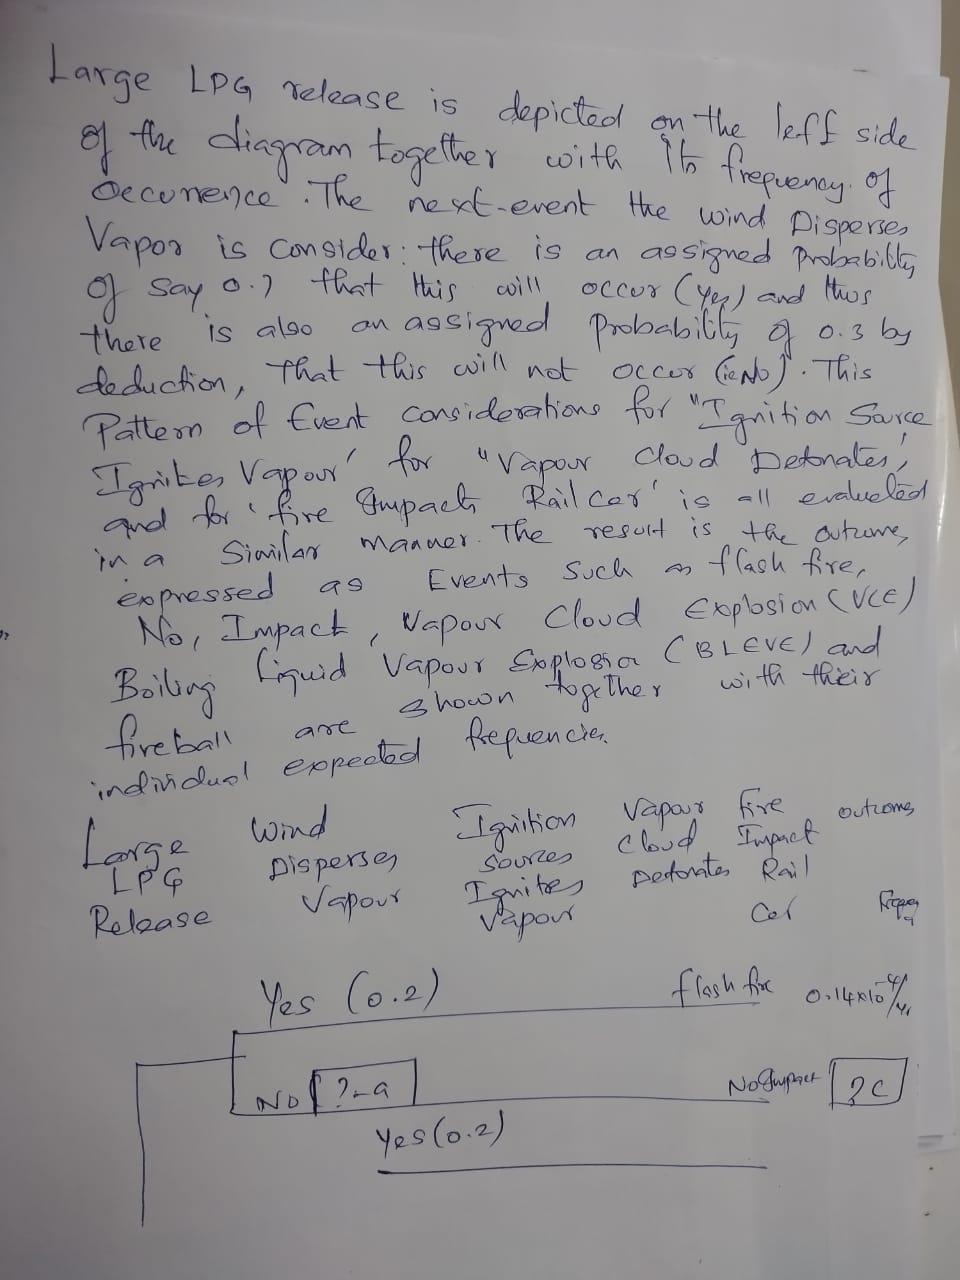 Large LPG release is depicted on the left side
of the diagram together with its frequency of
Occurrence. The next-event the wind Disperses
Vapor is consider: there is an assigned Probability
of say 0.7 that this will occur (Yes) and thus
there is also an assigned Probability of 0.3 by
deduction, that this will not occur (ie No). This
Pattern of Event considerations for "Ignition Source
Ignites Vapour' for "Vapour Cloud Detonates,'
and for 'fire Impacts Rail car' is all evalueted
in a Similar manner. The result is the outcome,
expressed as Events such as flash fire,
No, Impact, Vapour Cloud Explosion (VCE)
Boiling Liquid Vapour Explosion (BLEVE) and
fireball are shown together with their
individual expected frequencies.
Large Wind Ignition Vapour fire outcomes
LPG Disperses Sources Cloud Impact
Release Vapour Ignites Detonates Rail
Vapour Car
Yes (0.2) flash fire 0.14x10⁻⁴/Yr
No ?-a No Impact ?C
Yes (0.2)